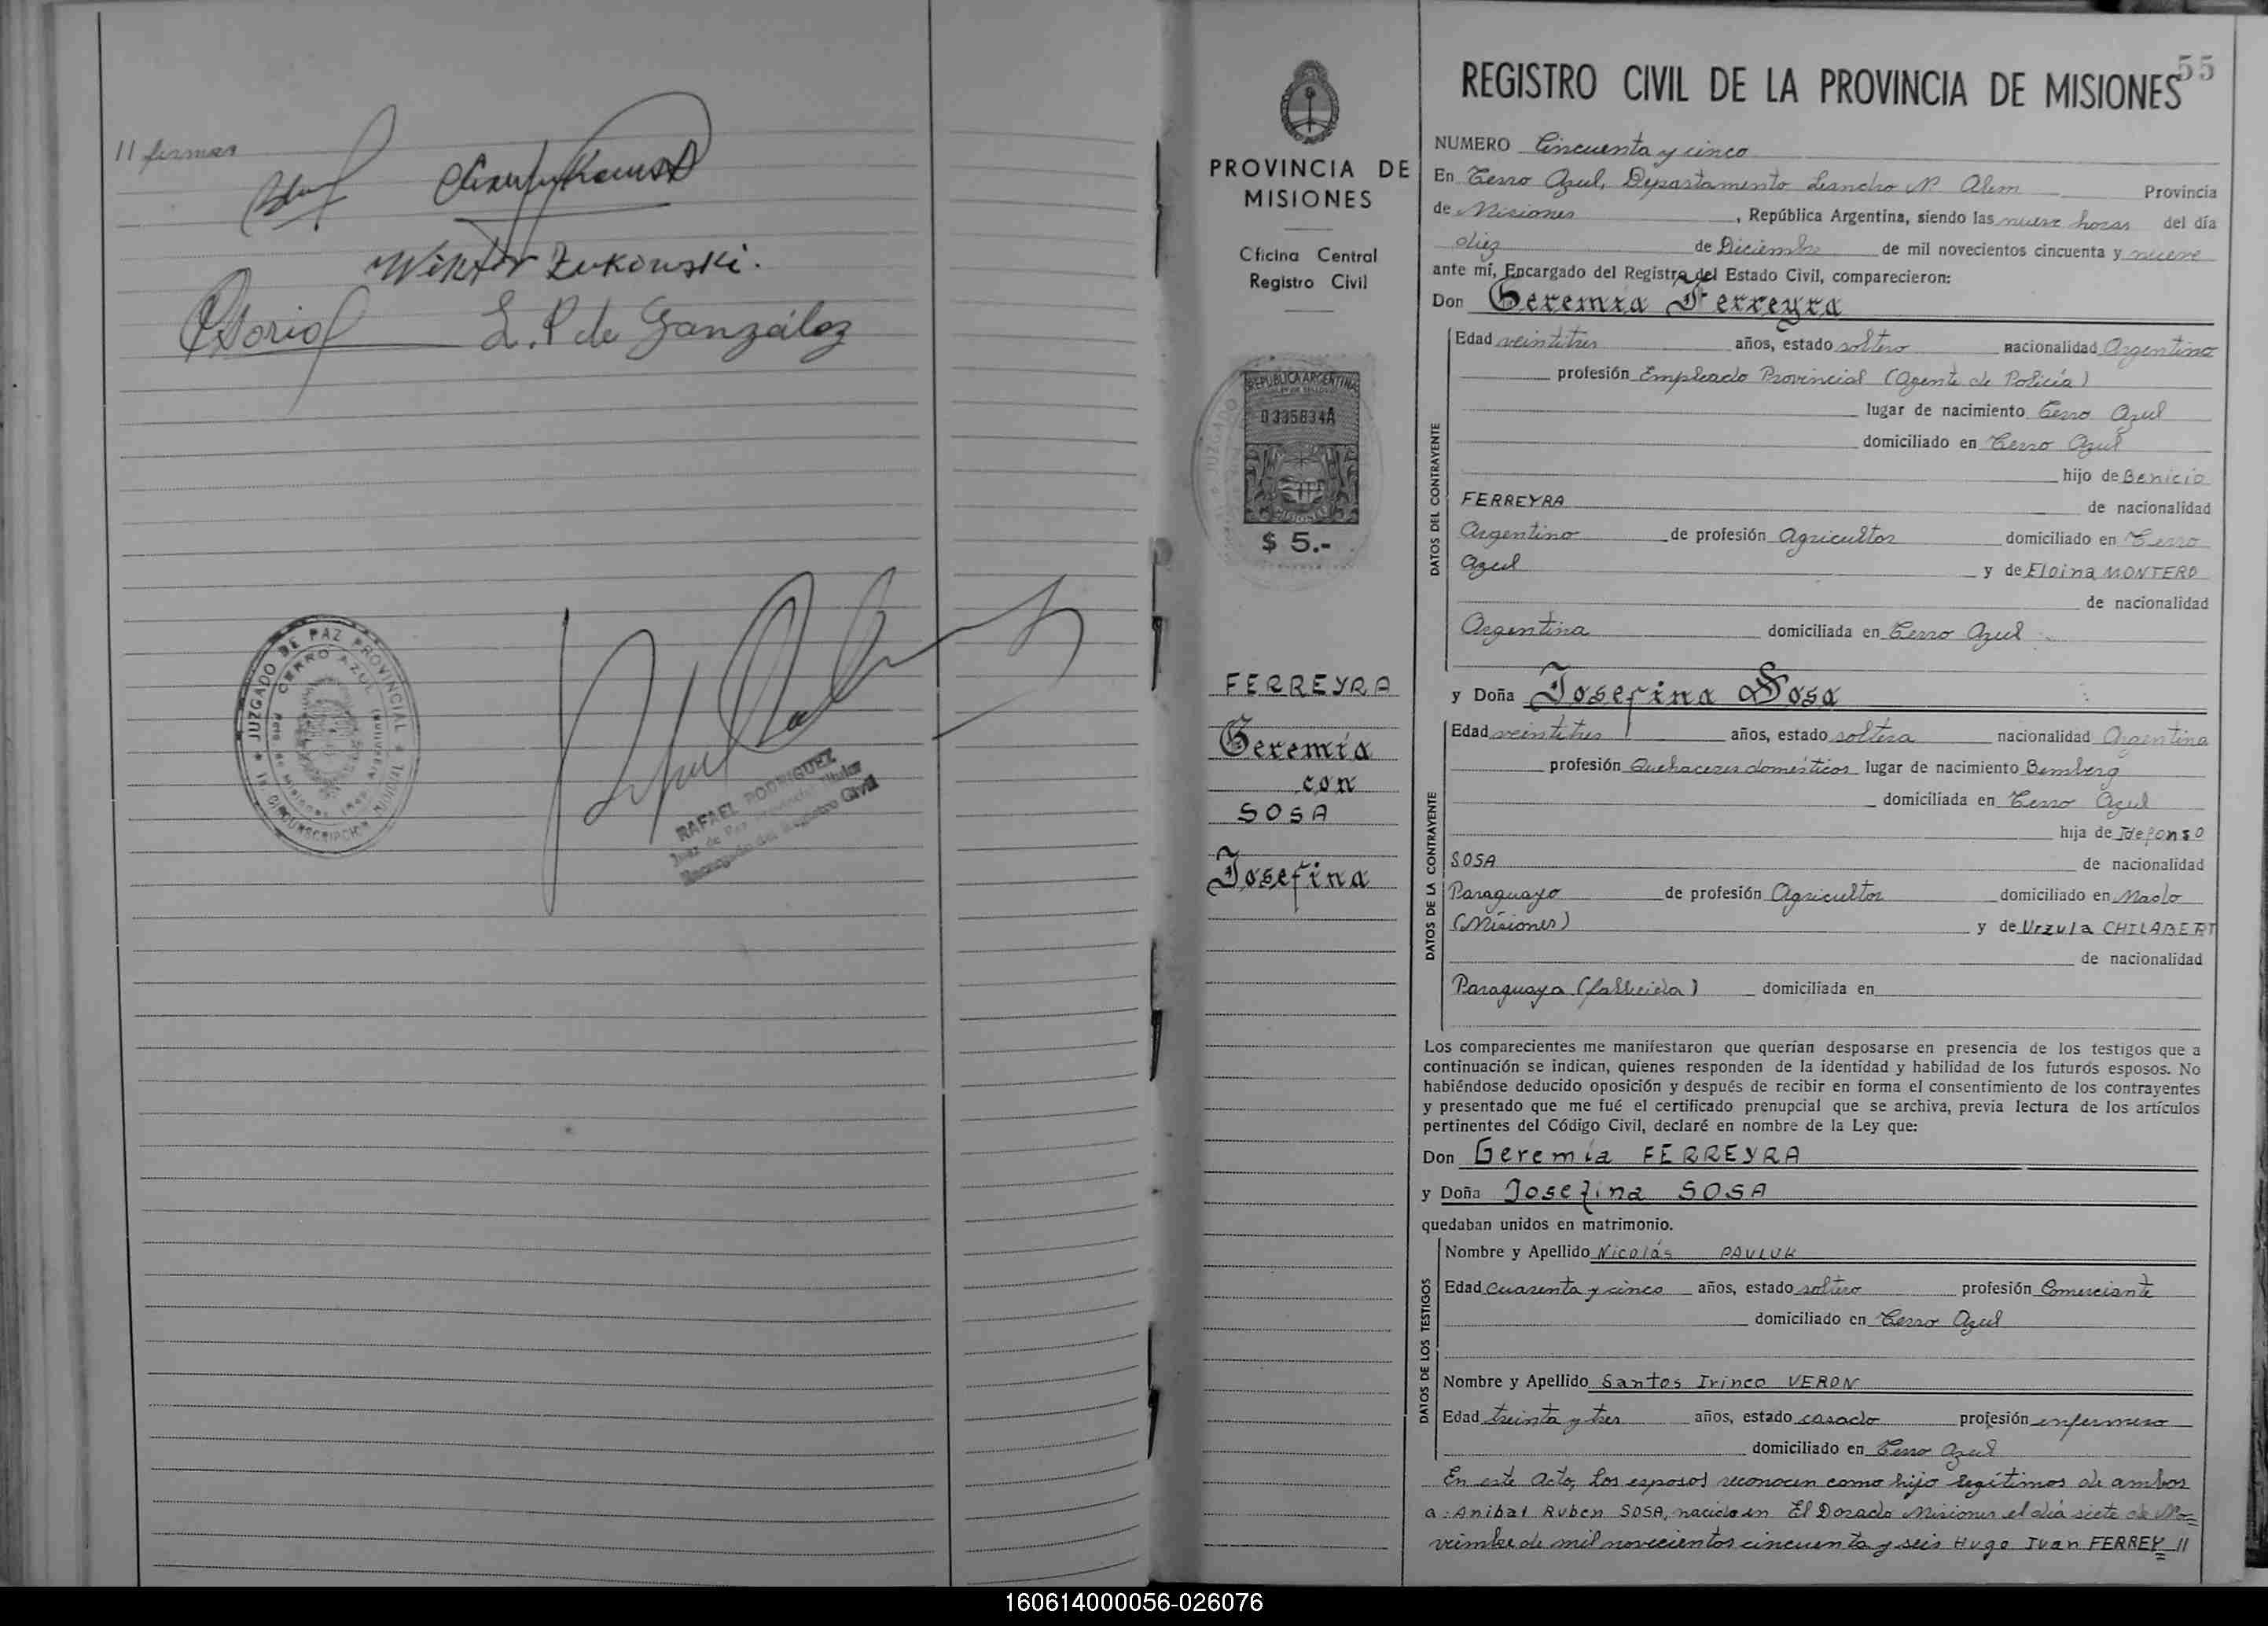 11 firmas
Wiktor Żukowski.
Osorio L. P de González
JUZGADO DE PAZ PROVINCIAL
CERRO AZUL
RAFAEL RODRIGUEZ
Juez de Paz Provincial Titular
Encargado del Registro Civil
PROVINCIA DE
MISIONES
Oficina Central
Registro Civil
REPUBLICA ARGENTINA
0335834A
MISIONES
$ 5.-
FERREYRA
Geremía
con
SOSA
Josefina
55
REGISTRO CIVIL DE LA PROVINCIA DE MISIONES
NUMERO Cincuenta y cinco
En Cerro Azul, Departamento Leandro N. Alem Provincia
de Misiones, República Argentina, siendo las nueve horas del día
diez de Diciembre de mil novecientos cincuenta y nueve
ante mí, Encargado del Registro del Estado Civil, comparecieron:
Don Geremía Ferreyra
DATOS DEL CONTRAYENTE
Edad veintitres años, estado soltero nacionalidad Argentina
profesión Empleado Provincial (Agente de Policía)
lugar de nacimiento Cerro Azul
domiciliado en Cerro Azul
hijo de Benicio
FERREYRA de nacionalidad
Argentino de profesión Agricultor domiciliado en Cerro
Azul y de Eloina MONTERO
de nacionalidad
Argentina domiciliada en Cerro Azul
y Doña Josefina Sosa
DATOS DE LA CONTRAYENTE
Edad veintitres años, estado soltera nacionalidad Argentina
profesión Quehaceres domésticos lugar de nacimiento Bemberg
domiciliada en Cerro Azul
hija de Idefonso
SOSA de nacionalidad
Paraguayo de profesión Agricultor domiciliado en
(Misiones) y de Urzula CHILABERT
de nacionalidad
Paraguaya (fallecida) domiciliada en
Los comparecientes me manifestaron que querían desposarse en presencia de los testigos que a
continuación se indican, quienes responden de la identidad y habilidad de los futuros esposos. No
habiéndose deducido oposición y después de recibir en forma el consentimiento de los contrayentes
y presentado que me fué el certificado prenupcial que se archiva, previa lectura de los artículos
pertinentes del Código Civil, declaré en nombre de la Ley que:
Don Geremía FERREYRA
y Doña Josefina SOSA
quedaban unidos en matrimonio.
DATOS DE LOS TESTIGOS
Nombre y Apellido Nicolás PAVLUK
Edad cuarenta y cinco años, estado soltero profesión Comerciante
domiciliado en Cerro Azul
Nombre y Apellido Santos Irineo VERON
Edad treinta y tres años, estado casado profesión enfermero
domiciliado en Cerro Azul
En este Acto, los esposos reconocen como hijo legítimos de ambos
a: Anibal Ruben SOSA, nacido en El Dorado Misiones el día siete de No=
viembre de mil novecientos cincuenta y seis Hugo Ivan FERREY //
160614000056-026076